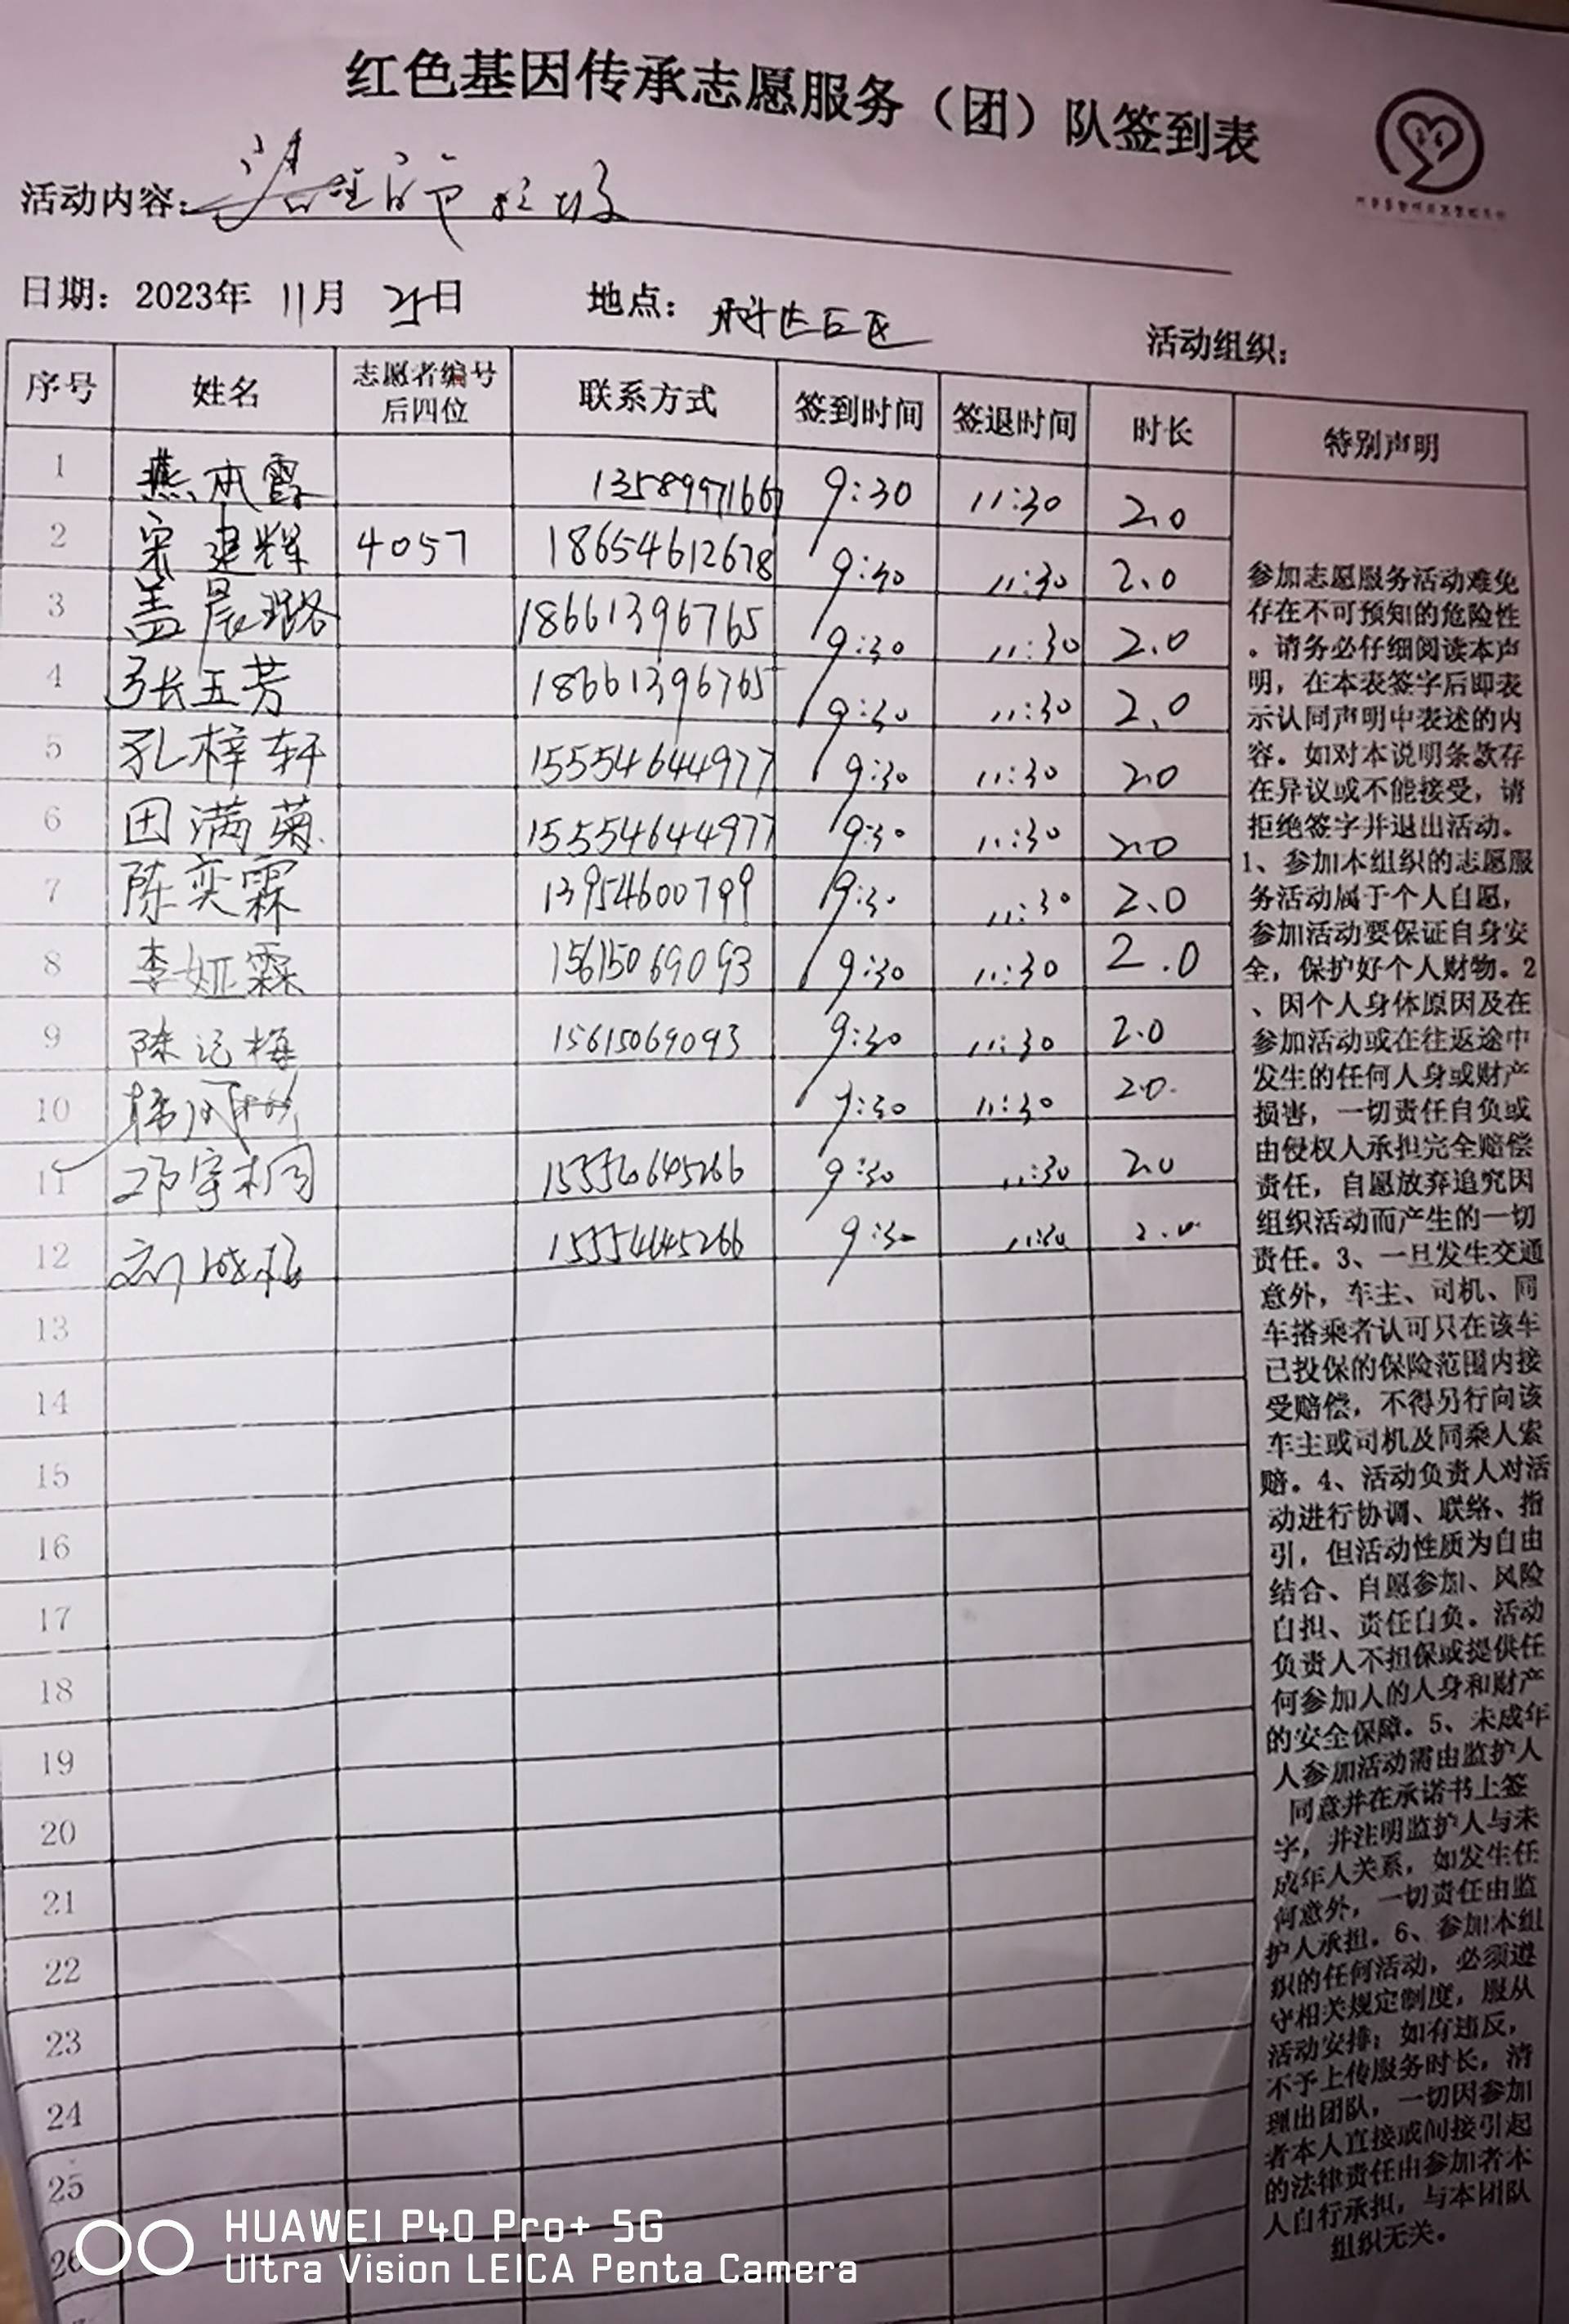 红色基因传承志愿服务（团）队签到表
活动内容：清理 垃圾
日期：2023年 11月 25日 地点： 活动组织：
序号 姓名 志愿者编号后四位 联系方式 签到时间 签退时间 时长 特别声明
1 燕本霞 9:30 11:30 2.0
2 宋建辉 4057 18654612678 9:30 11:30 2.0
3 盖晨璐 18661396765 9:30 11:30 2.0
4 张玉芳 18661396765 9:30 11:30 2.0
5 孔梓轩 15554644977 9:30 11:30 2.0
6 田满菊 15554644977 9:30 11:30 2.0
7 陈奕霖 13954600799 9:30 11:30 2.0
8 李娅霖 15615069093 9:30 11:30 2.0
9 陈 梅 15615069093 9:30 11:30 2.0
10 9:30 11:30 2.0
11 邓宇桐 9:30 11:30 2.0
12 9:30 11:30 2.0
13
14
15
16
17
18
19
20
21
22
23
24
25
26
参加志愿服务活动难免
存在不可预知的危险性
。请务必仔细阅读本声
明，在本表签字后即表
示认同声明中表述的内
容。如对本说明条款存
在异议或不能接受，请
拒绝签字并退出活动。
1、参加本组织的志愿服
务活动属于个人自愿，
参加活动要保证自身安
全，保护好个人财物。2
、因个人身体原因及在
参加活动或在往返途中
发生的任何人身或财产
损害，一切责任自负或
由侵权人承担完全赔偿
责任，自愿放弃追究因
组织活动而产生的一切
责任。3、一旦发生交通
意外，车主、司机、同
车搭乘者认可只在该车
已投保的保险范围内接
受赔偿，不得另行向该
车主或司机及同乘人索
赔。4、活动负责人对活
动进行协调、联络、指
引，但活动性质为自由
结合、自愿参加、风险
自担、责任自负。活动
负责人不担保或提供任
何参加人的人身和财产
的安全保障。5、未成年
人参加活动需由监护人
同意并在承诺书上签
字，并注明监护人与未
成年人关系，如发生任
何意外，一切责任由监
护人承担。6、参加本组
织的任何活动，必须遵
守相关规定制度，服从
活动安排；如有违反，
不予上传服务时长，清
理出团队，一切因参加
者本人直接或间接引起
的法律责任由参加者本
人自行承担，与本团队
组织无关。
HUAWEI P40 Pro+ 5G
Ultra Vision LEICA Penta Camera